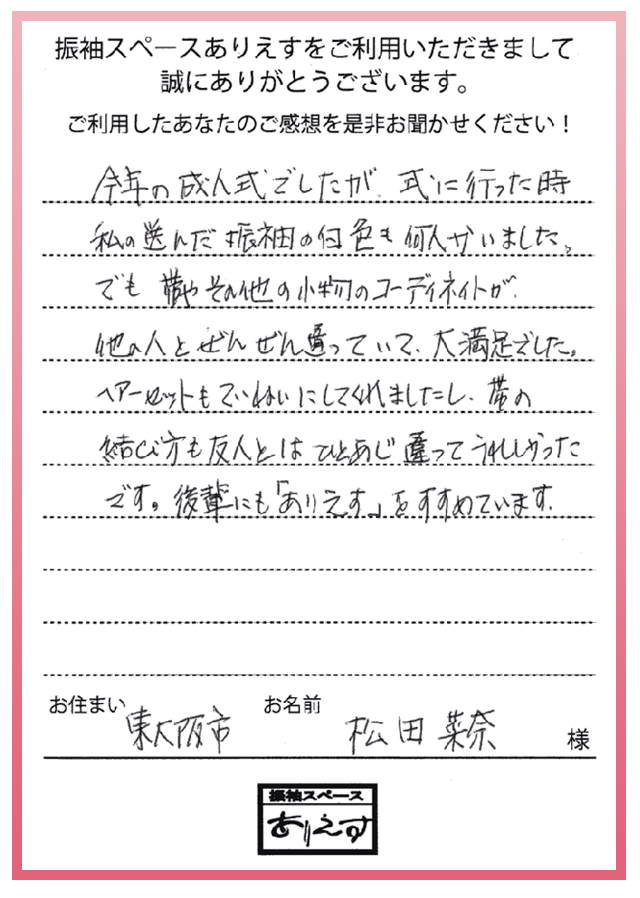 振袖スペースありえすをご利用いただきまして
誠にありがとうございます。
ご利用したあなたのご感想を是非お聞かせください！
今年の成人式でしたが、式に行った時
私の選んだ振袖の同色も何人かいました。
でも帯やその他の小物のコーディネイトが、
他の人とぜんぜん違っていて、大満足でした。
ヘアーセットもていねいにしてくれましたし、帯の
結び方も友人とはひとあじ違ってうれしかった
です。後輩にも「ありえす」をすすめています。
お住まい 東大阪市 お名前 松田菜奈 様
振袖スペース
ありえす